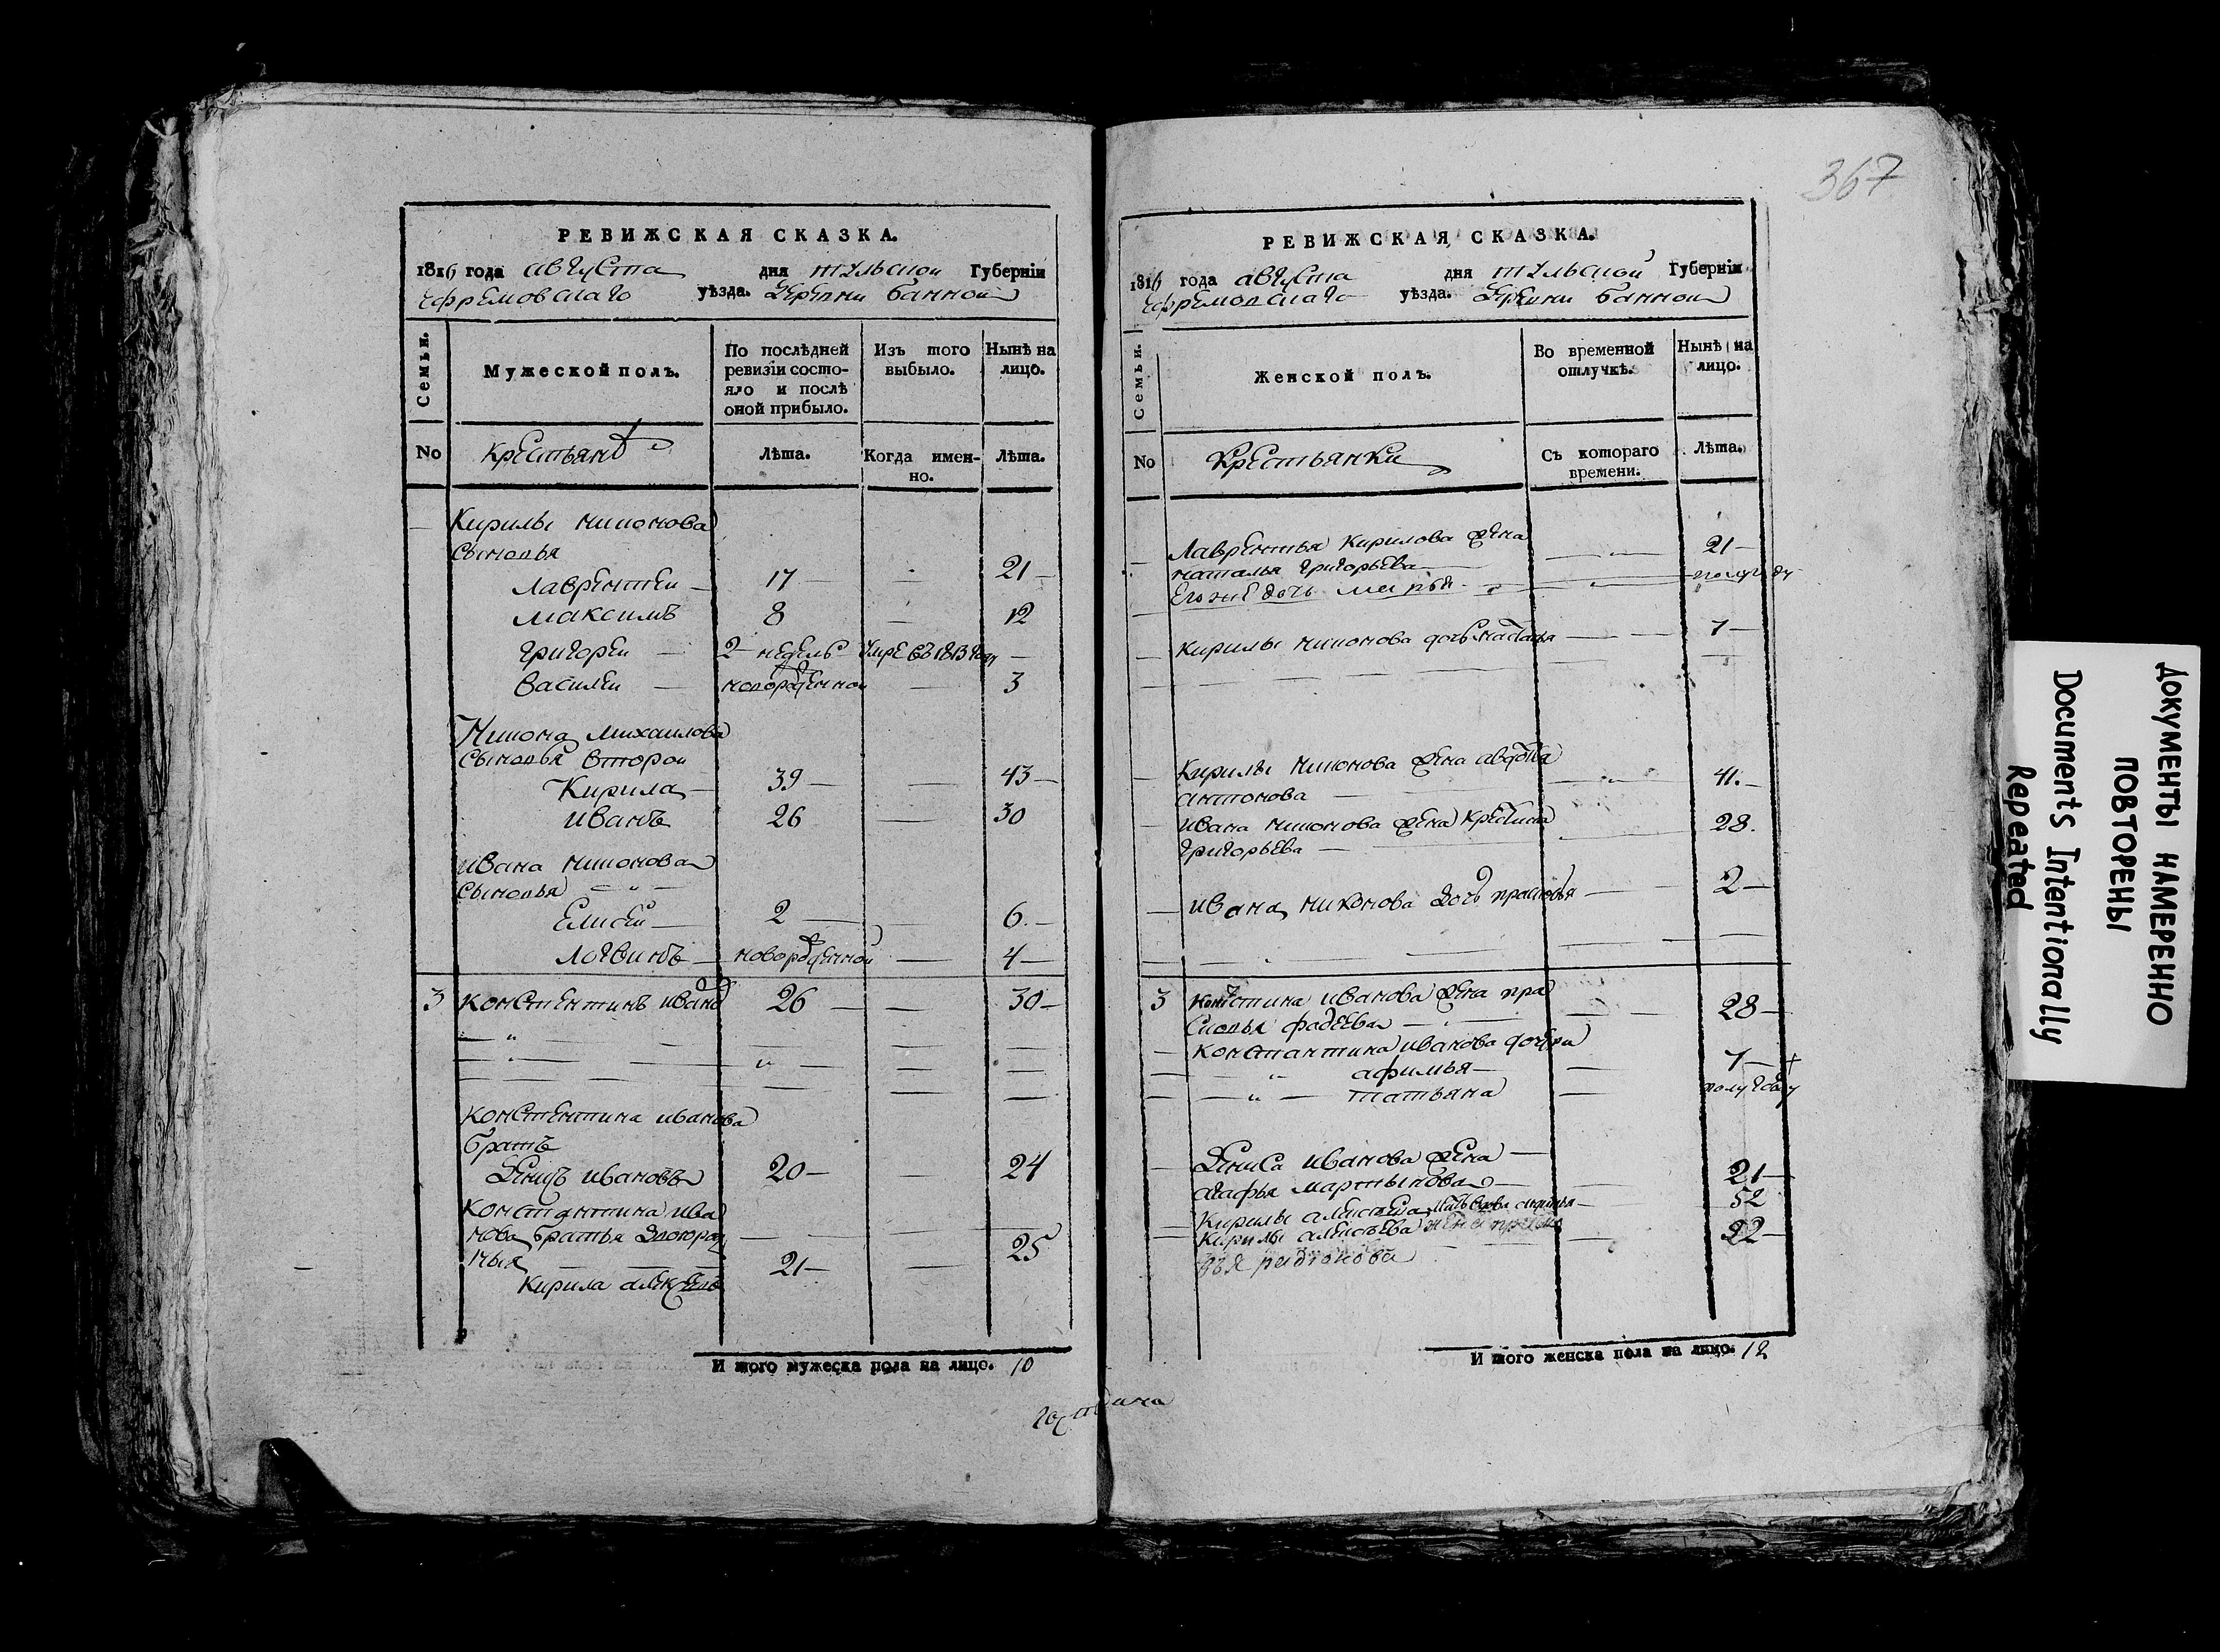 367
РЕВИЖСКАЯ СКАЗКА.
1816 года августа дня тульской Губерніи
ефремовскаго уѣзда. деревни банной
Семьи.
Мужеской полъ.
По послѣдней ревизіи состо-
яло и послѣ оной прибыло.
Изъ того выбыло.
Нынѣ на лицо.
No крестьянѣ Лѣта. Когда имен-
но. Лѣта.
Кирилы никонова
сыновья
Лаврентеи 17 21
максимъ 8 12
григореи 2 недель умре въ 1813 году
василеи новорожденной 3
Никона михаилова
сыновья второи
Кирила 39 43
иванъ 26 30
ивана никонова
сыновья
Елисеи 2 6.
Логвинъ новорожденной 4
3 констентинъ иванов 26 30
констентина иванова
братъ
денисъ ивановъ 20 24
констянтина ива
нова братья двоюрод
ныя 25
Кирила алексеевъ 21
И того мужеска пола на лицо. 10
РЕВИЖСКАЯ СКАЗКА.
1816 года августа дня тульской Губерніи
ефремовскаго уѣзда. деревни банной
Семьи.
Женской полъ.
Во временной отлучкѣ.
Нынѣ на лицо.
No крестьянки Съ котораго
времени. Лѣта.
Лаврентья кирилова жена 21
наталья григорьева
его же дочь марья полугоду
кирилы никонова дочь наталья 7
кирилы никонова жена авдотья
антонова 41.
ивана никонова жена кристина 28.
григорьева
ивана никонова дочь прасковья 2
3 констина иванова жена пра
сковья фадеева 28
константина иванова дочери
афимья 7 +
татьяна полугоду
дениса иванова жена
агафья мартынова 21
кирилы алексеева мать вдова 52
кирилы алексеева жена 22
родионова
И того женска пола на лицо. 12
ДОКУМЕНТЫ НАМЕРЕННО
ПОВТОРЕНЫ
Documents Intentionally
Repeated